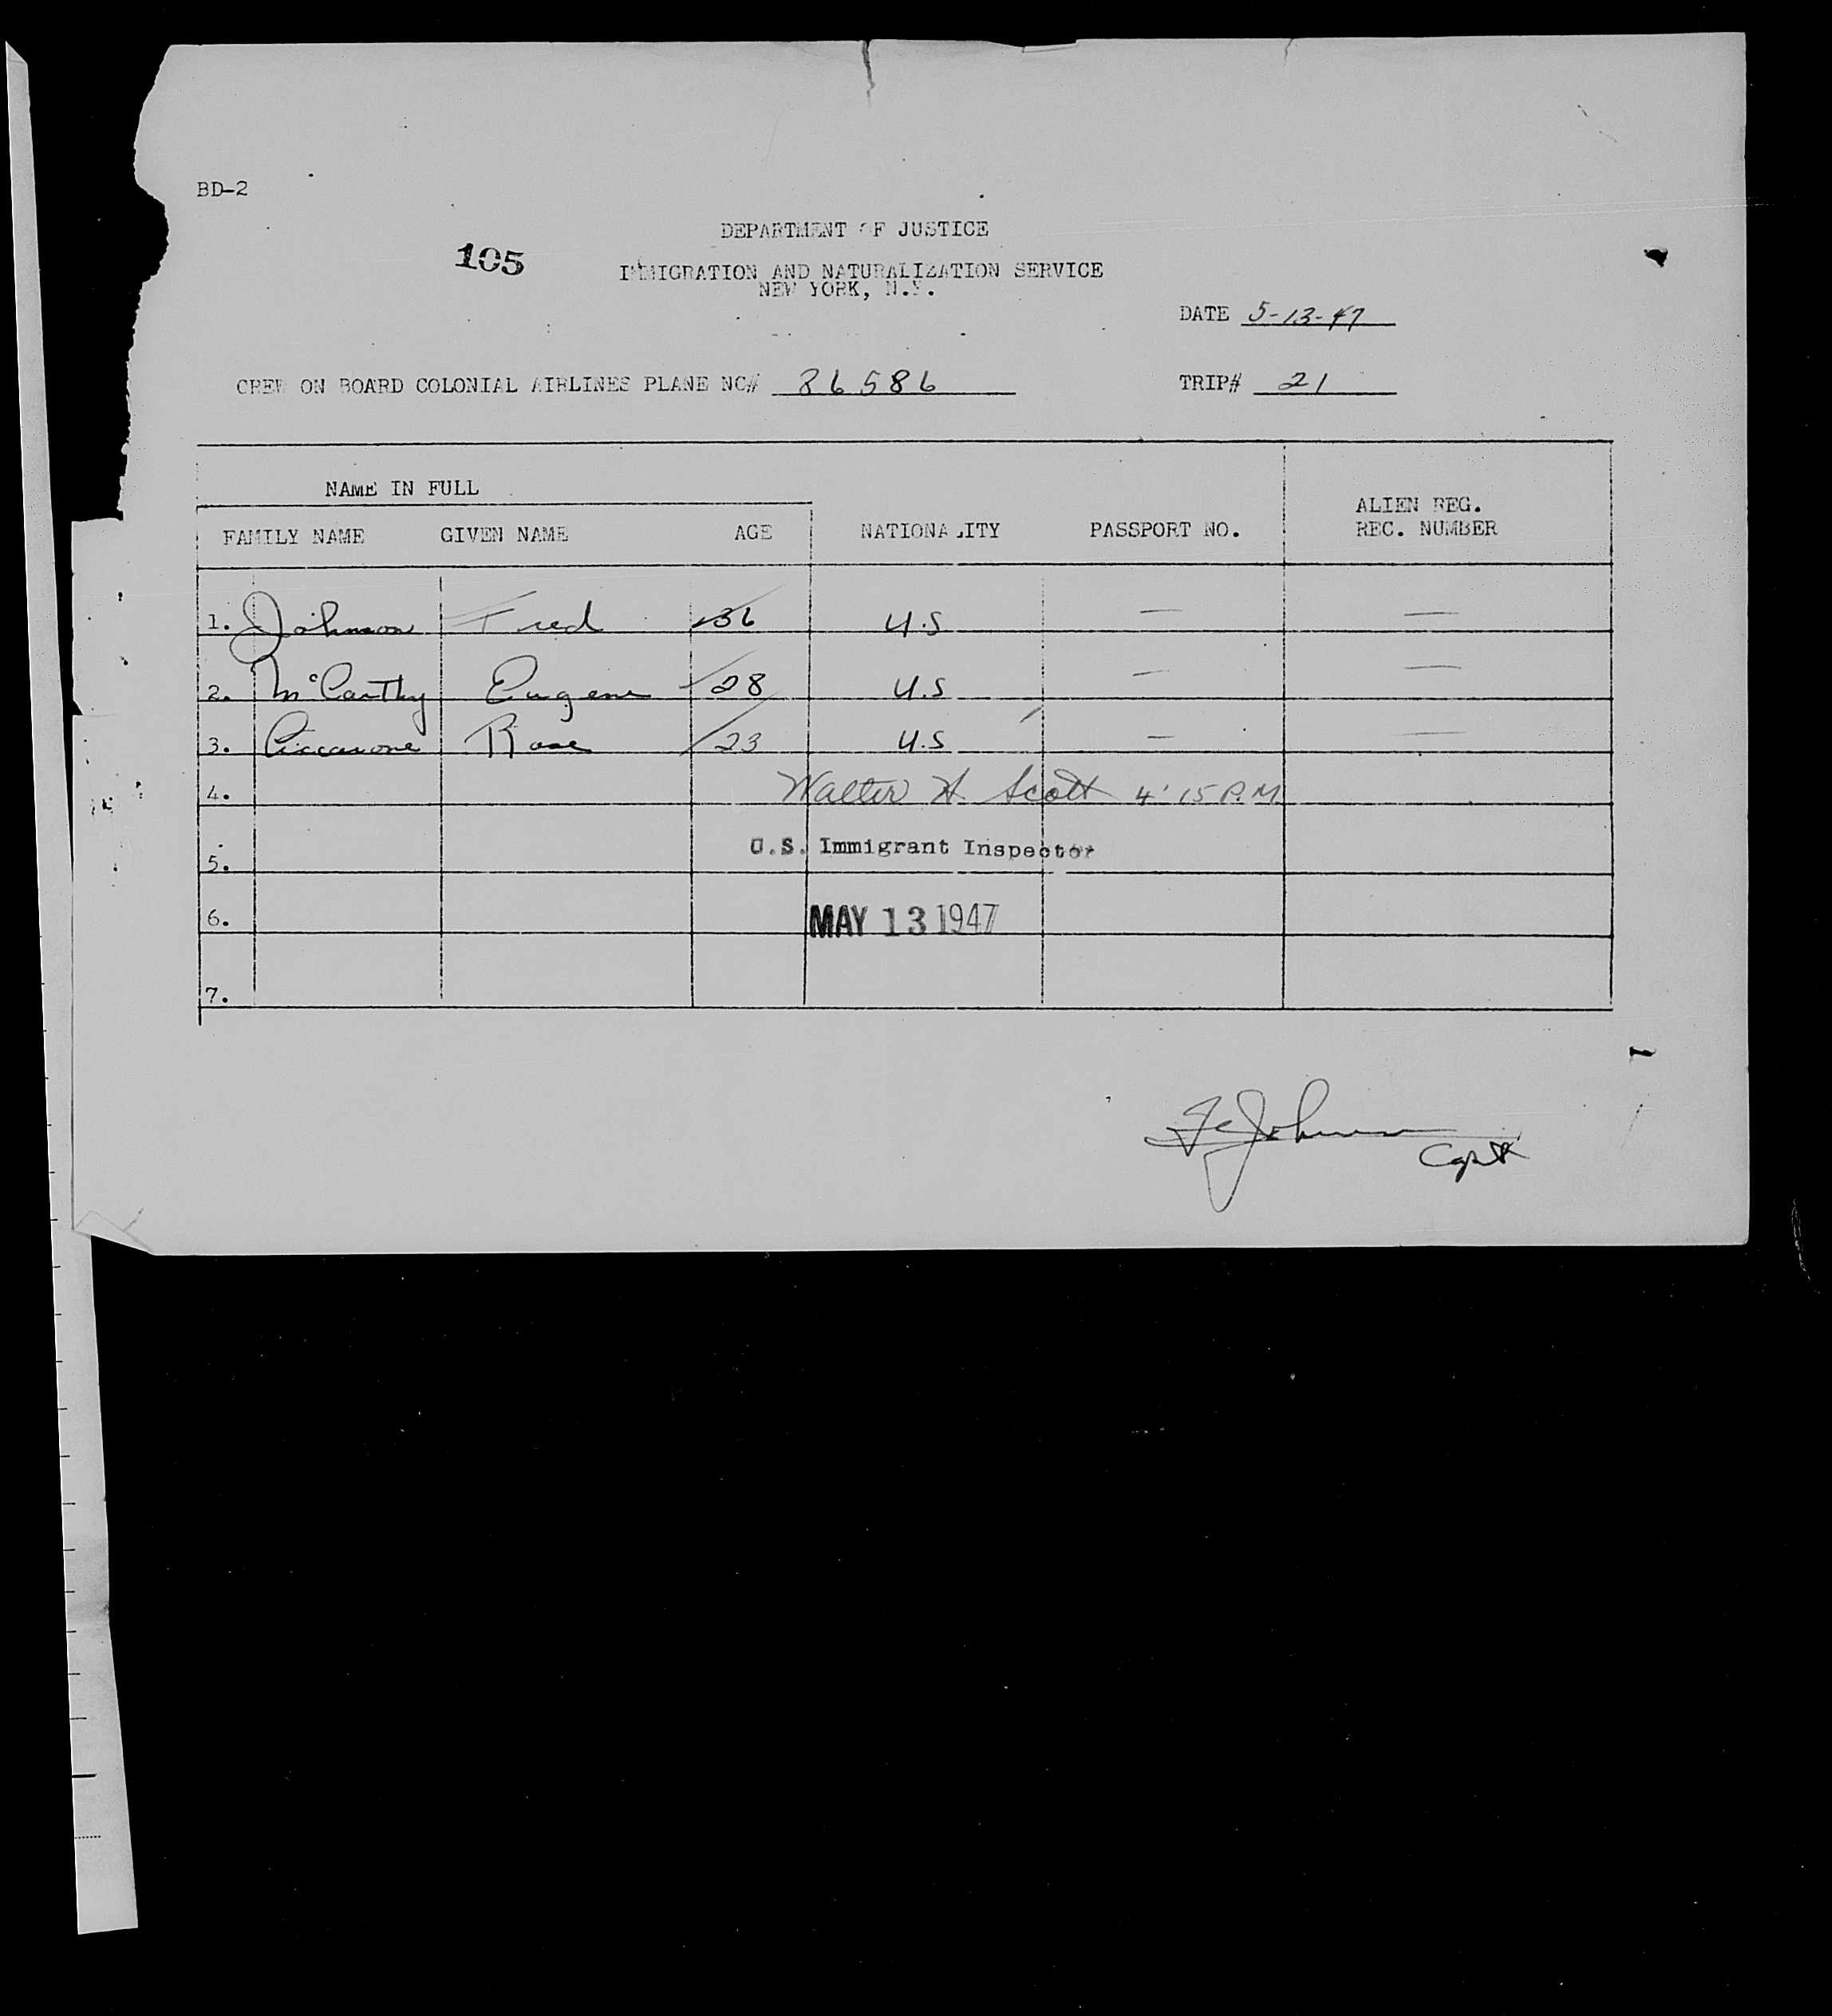 BD-2
DEPARTMENT OF JUSTICE
105
IMMIGRATION AND NATURALIZATION SERVICE
NEW YORK, N.Y.
DATE 5-13-47
CREW ON BOARD COLONIAL AIRLINES PLANE NC# 86586
TRIP# 21
NAME IN FULL
ALIEN REG.
FAMILY NAME GIVEN NAME AGE NATIONALITY PASSPORT NO. REC. NUMBER
1. Johnson Fred 36 U.S — —
2. McCarthy Eugene 28 U.S — —
3. Ciccarone Rose 23 U.S — —
4. Walter H. Scott 4:15 P.M
5. U.S. Immigrant Inspector
6. MAY 13 1947
7.
F C Johnson
Capt